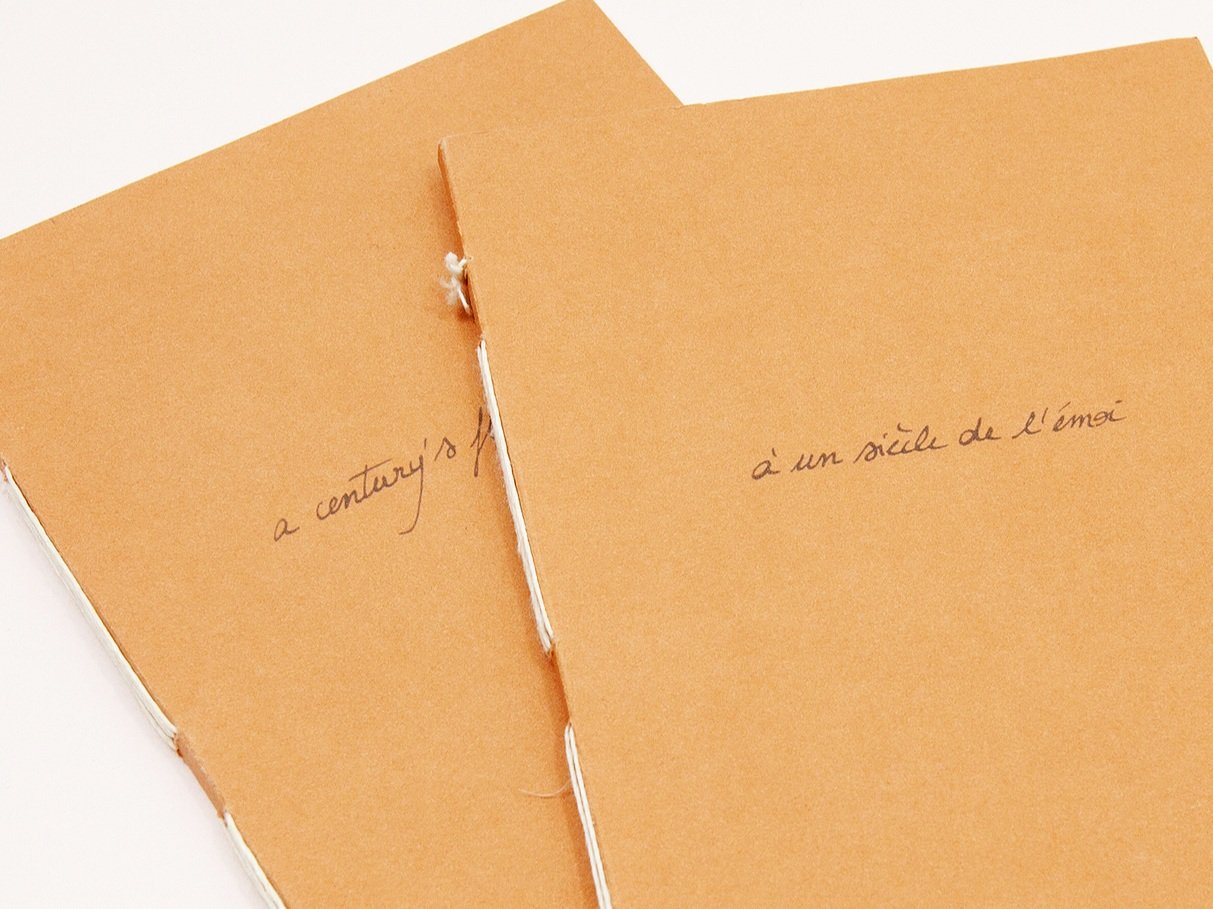 a century's
à un siècle de l'émoi